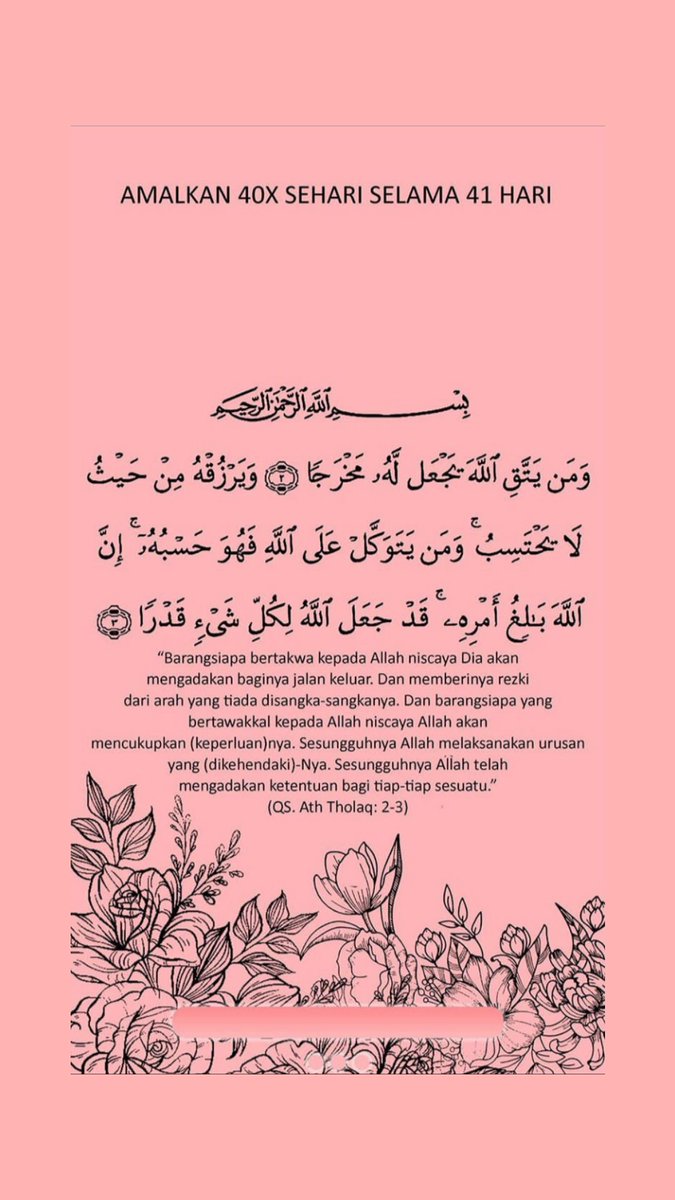 AMALKAN 40X SEHARI SELAMA 41 HARI
بِسْمِ اللَّهِ الرَّحْمَٰنِ الرَّحِيمِ
وَمَن يَتَّقِ ٱللَّهَ يَجْعَل لَّهُۥ مَخْرَجًا ٢ وَيَرْزُقْهُ مِنْ حَيْثُ
لَا يَحْتَسِبُ ۚ وَمَن يَتَوَكَّلْ عَلَى ٱللَّهِ فَهُوَ حَسْبُهُۥٓ ۚ إِنَّ
ٱللَّهَ بَـٰلِغُ أَمْرِهِۦ ۚ قَدْ جَعَلَ ٱللَّهُ لِكُلِّ شَىْءٍ قَدْرًا ٣
“Barangsiapa bertakwa kepada Allah niscaya Dia akan
mengadakan baginya jalan keluar. Dan memberinya rezki
dari arah yang tiada disangka-sangkanya. Dan barangsiapa yang
bertawakkal kepada Allah niscaya Allah akan
mencukupkan (keperluan)nya. Sesungguhnya Allah melaksanakan urusan
yang (dikehendaki)-Nya. Sesungguhnya Allah telah
mengadakan ketentuan bagi tiap-tiap sesuatu.”
(QS. Ath Tholaq: 2-3)